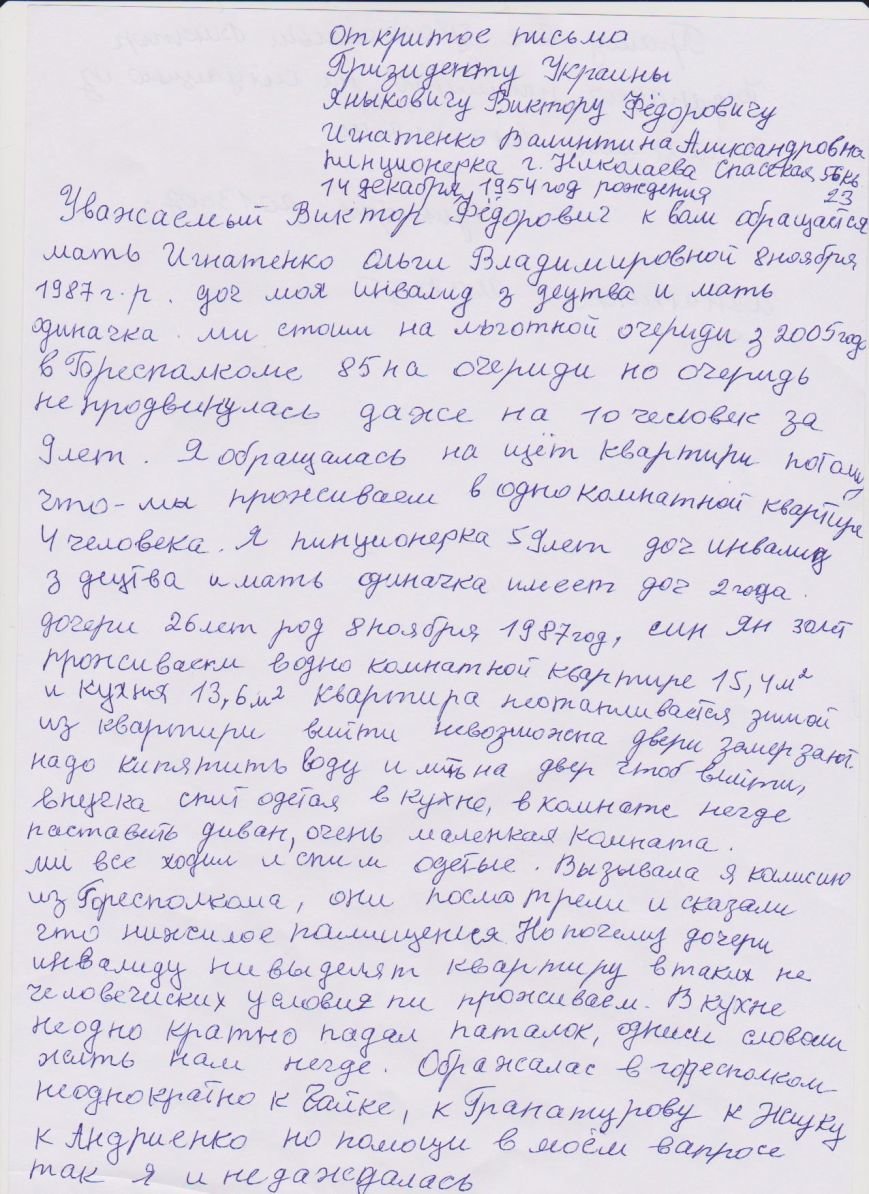 Откритое письма
Призиденту Украины
Яныковичу Виктору Фёдоровичу
Игнатенко Валинтина Аликсандровна
пинционерка г. Николаева Спасская 56 кв
14 декабря 1954 год рождения 23
Уважаемый Виктор Фёдорович к вам обращается
мать Игнатенко Ольги Владимировной 8 ноября
1987 г.р. доч моя инвалид з децтва и мать
одиначка. ми стоим на льготной очериди з 2005 год
в Гореспалкоме 85 на очериди но очеридь
не продвинулась даже на 10 человек за
9 лет. Я обращалась на щёт квартири потому
что - мы проживаем в одно комнатной квартире
4 человека. Я пинционерка 59 лет доч инвалид
з децтва и мать одиначка имеет доч 2 года.
дочери 26 лет род 8 ноября 1987 год, син Ян 30 лет
проживаем водно комнатной квартире 15,4 м²
и кухня 13,6 м² квартира неотапливается зимой
из квартири вийти невозможна двери замерзают.
надо кипятить воду и лить на двер чтоб вийти,
внучка спит одетая в кухне, в комнате негде
паставить диван, очень маленкая комната.
ми все ходим и спим одетые. Вызывала я камисию
из Горесполкома, они посмотрели и сказали
что нижилое памищения. Но почему дочери
инвалиду ни выделят квартиру в таких не
человечиских условия ми проживаем. В кухне
неодно кратно падал паталок, одним словом
жить нам негде. Ображалас в горесполком
неоднократно к Чайке, к Гранатурову к Жуку
к Андриенко но помощи в моём вапросе
так я и не даждалась